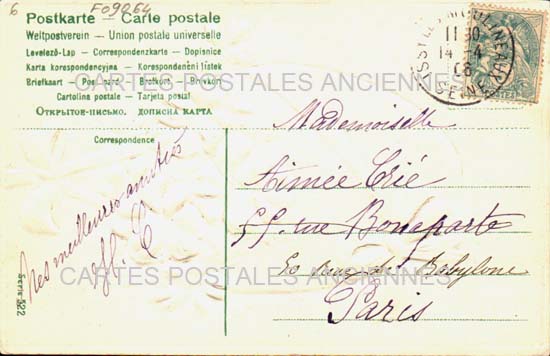 6
F09264
Postkarte - Carte postale
Weltpostverein - Union postale universelle
Levelező-Lap - Correspondenzkarte - Dopisnice
Karta korespondencyjna - Korespondenční lístek
Briefkaart - Post card - Brefkort - Brevkort
Cartolina postale - Tarjeta postal
Открытое-письмо. дописна карта
CARTES POSTALES ANCIENNES
Correspondence
Mes meilleures amitiés
ISSY-LES-MOULINEAUX
11 30
14 - 4
SEINE
Mademoiselle
Aimée
55 rue Bonaparte
20 Rue de Babylone
Paris
CARTES POSTALES ANCIENNES
Serie 322